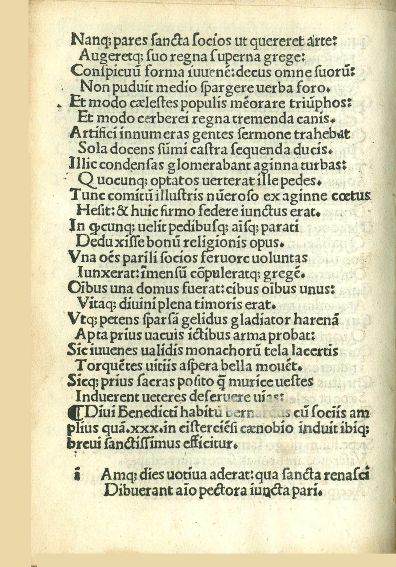 Nanq; pares sancta socios ut quereret arte:
Augeretq; suo regna superna grege:
Conspicuũ forma iuuenẽ: decus omne suorũ:
Non puduit medio spargere uerba foro.
Et modo cælestes populis mẽorare triũphos:
Et modo cerberei regna tremenda canis.
Artifici innumeras gentes sermone trahebat
Sola docens sũmi castra sequenda ducis.
Illic condensas glomerabant agmina turbas:
Quocunq; optatos uerterat ille pedes.
Tunc comitũ illustris nũeroso ex agmine cœtus
Hesit: & huic firmo federe iunctus erat.
In qcunq; uelit pedibusq; aĩsq; parati
Deduxisse bonũ religionis opus.
Vna oẽs parili socios feruore uoluntas
Iunxerat: ĩmensũ cõpuleratq; gregẽ.
Oĩbus una domus fuerat: cibus oĩbus unus:
Vitaq; diuini plena timoris erat.
Vtq; petens sparsã gelidus gladiator harenã
Apta prius uacuis ictibus arma probat:
Sic iuuenes ualidis monachorũ tela lacertis
Torquẽtes uitiis aspera bella mouẽt.
Sicq; prius sacras posito q̃ murice uestes
Induerent ueteres deseruere uias:
¶ Diui Benedicti habitũ bernardus cũ sociis am
plius quã .xxx. in cisterciẽsi cænobio induit ibiq;
breui sanctissimus efficitur.
i Amq; dies uotiua aderat: qua sancta renasci
Dibuerant aĩo pectora iuncta pari.